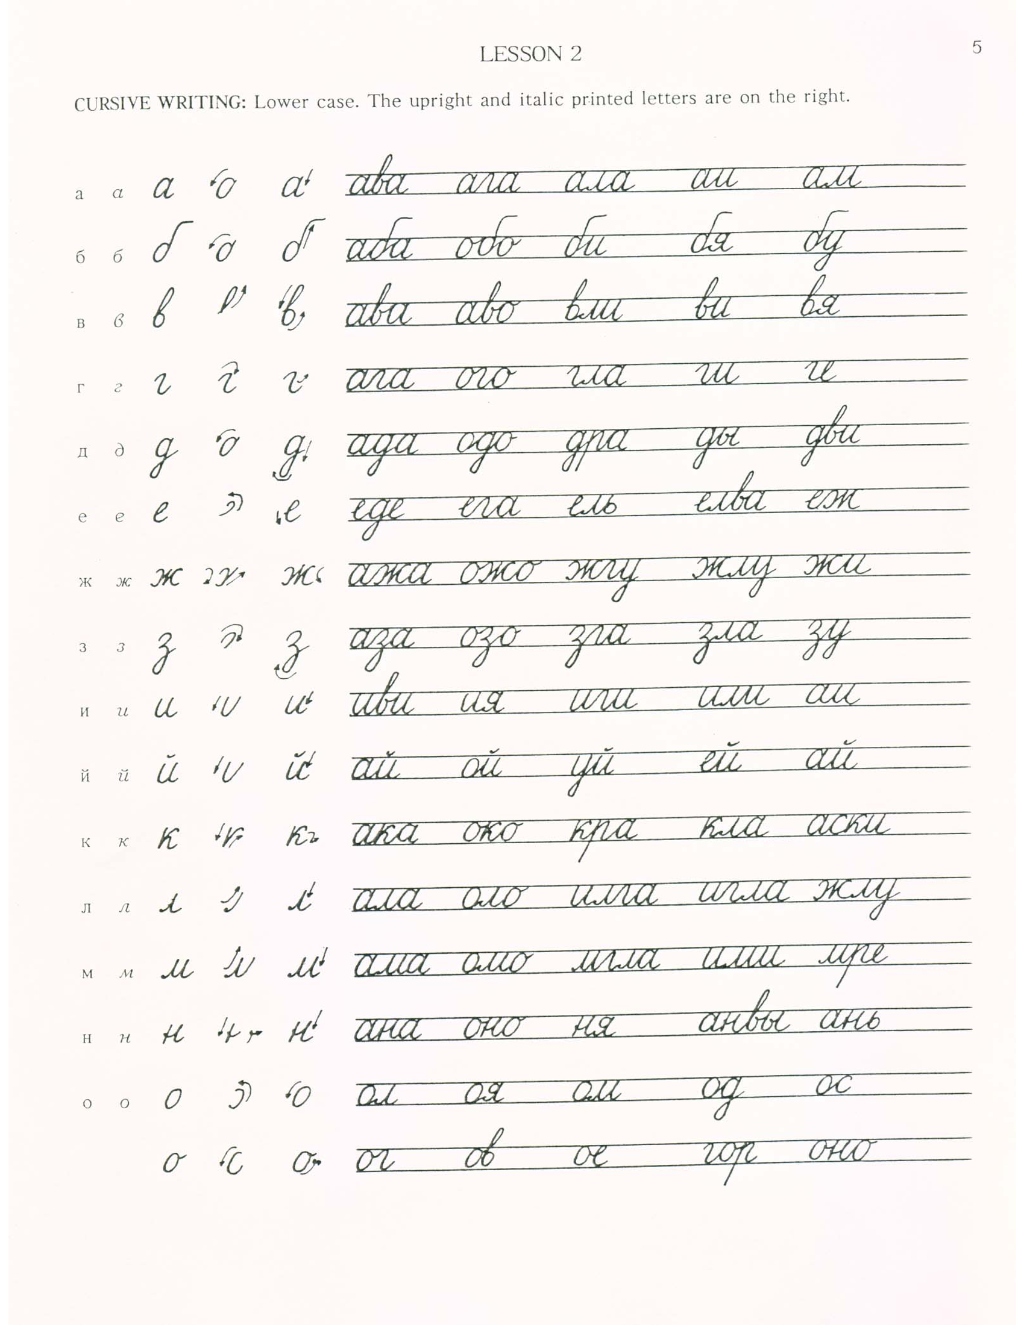 LESSON 2
5
CURSIVE WRITING: Lower case. The upright and italic printed letters are on the right.
а а а а ава ага ала аи ам
б б б б аба обо би бя бу
в в в в ава аво вли ви вя
г г г г ага ого гла ги ге
д д д д ада одо дра ды дви
е е е е еде ега ель елва еж
ж ж ж ж ажа ожо жгу жлу жи
з з з з аза озо зга зла зу
и и и и иви ия иги или аи
й й й й ай ой уй ей ай
к к к к ака око кра кла аски
л л л л ала оло илга игла жлу
м м м м ама омо мгла ими мре
н н н н ана оно ня анвы ань
о о о о ол оя ом од ос
о о ог ов ое гор оно